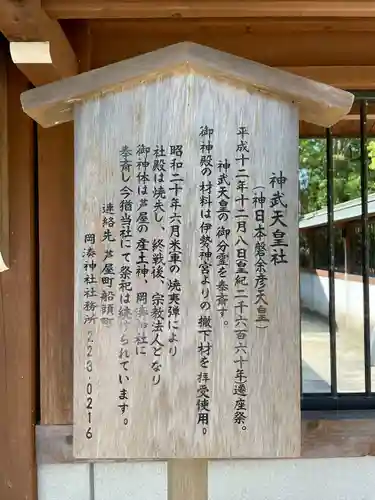 神武天皇社
(神日本磐余彦天皇)
平成十二年十二月八日皇紀二千六百六十年遷座祭。
神武天皇の御分霊を奉斎す。
御神殿の材料は伊勢神宮よりの撤下材を拝受使用。
昭和二十年六月米軍の焼夷弾により
社殿は焼失し、終戦後、宗教法人となり
御神体は芦屋の産土神、岡湊神社に
奉斎し今猶当社にて祭祀は続けられています。
連絡先 芦屋町船頭町
岡湊神社社務所 223-0216